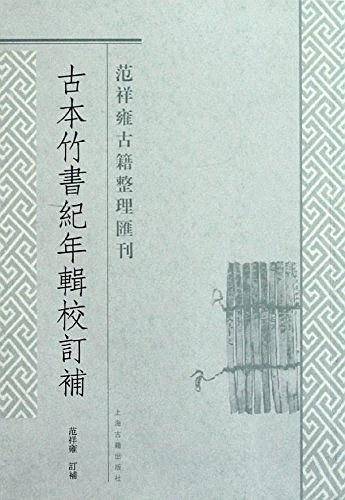 范祥雍古籍整理匯刊
古本竹書紀年輯校訂補
范祥雍 訂補
上海古籍出版社